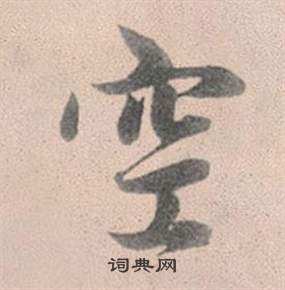 空
词典网